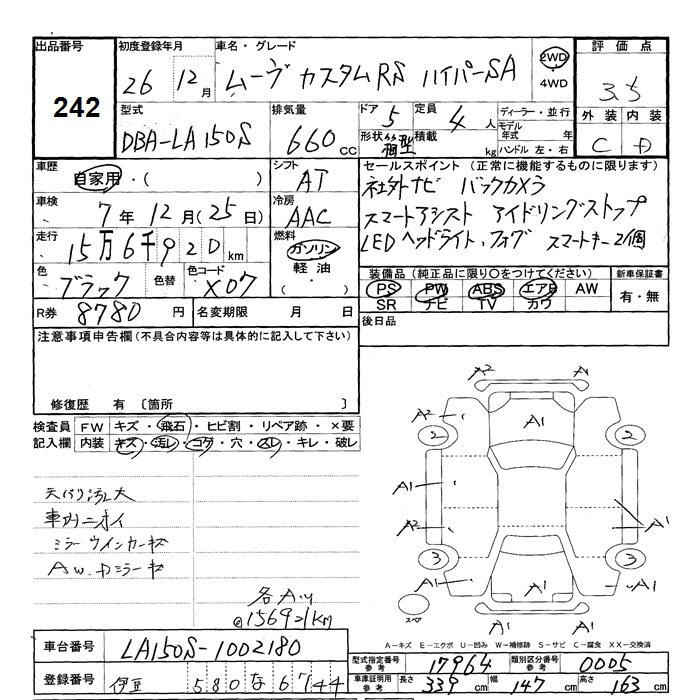 出品番号
242
初度登録年月
26 12月
車名・グレード
ムーヴ カスタムRS ハイパーSA
2WD
・
4WD
評価点
3.5
外装 内装
C D
型式
DBA-LA150S
排気量
660 cc
ドア 5
形状 箱型
定員 4 人
積載 kg
ディーラー・並行
モデル年式 年
ハンドル 左・右
車歴
自家用・( )
シフト
AT
セールスポイント (正常に機能するものに限ります)
社外ナビ バックカメラ
スマートアシスト アイドリングストップ
LEDヘッドライト・フォグ スマートキー2個
車検
7年12月(25日)
冷房
AAC
走行
15万6千920km
燃料
ガソリン
軽油
・( )
色
ブラック
色替
色コード
X07
装備品 (純正品に限り○をつけてください)
PS PW ABS エアB AW
SR ナビ TV カワ
新車保証書
有・無
R券 8780 円
名変期限 月 日
後日品
注意事項申告欄 (不具合内容等は具体的に記入して下さい)
修復歴 有 〔箇所 〕
検査員記入欄
FW キズ・飛石・ヒビ割・リペア跡・×要
内装 キズ・汚レ・コゲ・穴・スレ・キレ・破レ
天バリ汚レ大
車内ニオイ
ミラーウインカーキズ
AW.Dミラーキズ
各Aツ
@156921km
A2 A
A2 A1
2 2
A1
A2 A1
3 3
A1 A1 A1
スペア
A1 A1
A－キズ E－エクボ U－凹み W－補修跡 S－サビ C－腐食 XX－交換済
車台番号 LA150S-1002180
登録番号 伊豆 580 な 6744
型式指定番号 参考 17964
類別区分番号 参考 0005
車庫証明用 参考 長さ 339 cm 幅 147 cm 高さ 163 cm